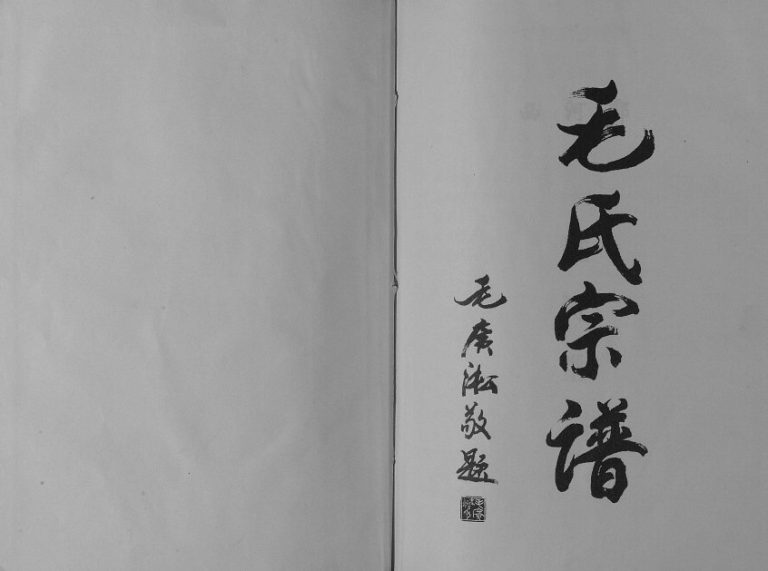 毛氏宗譜
毛广淞敬题